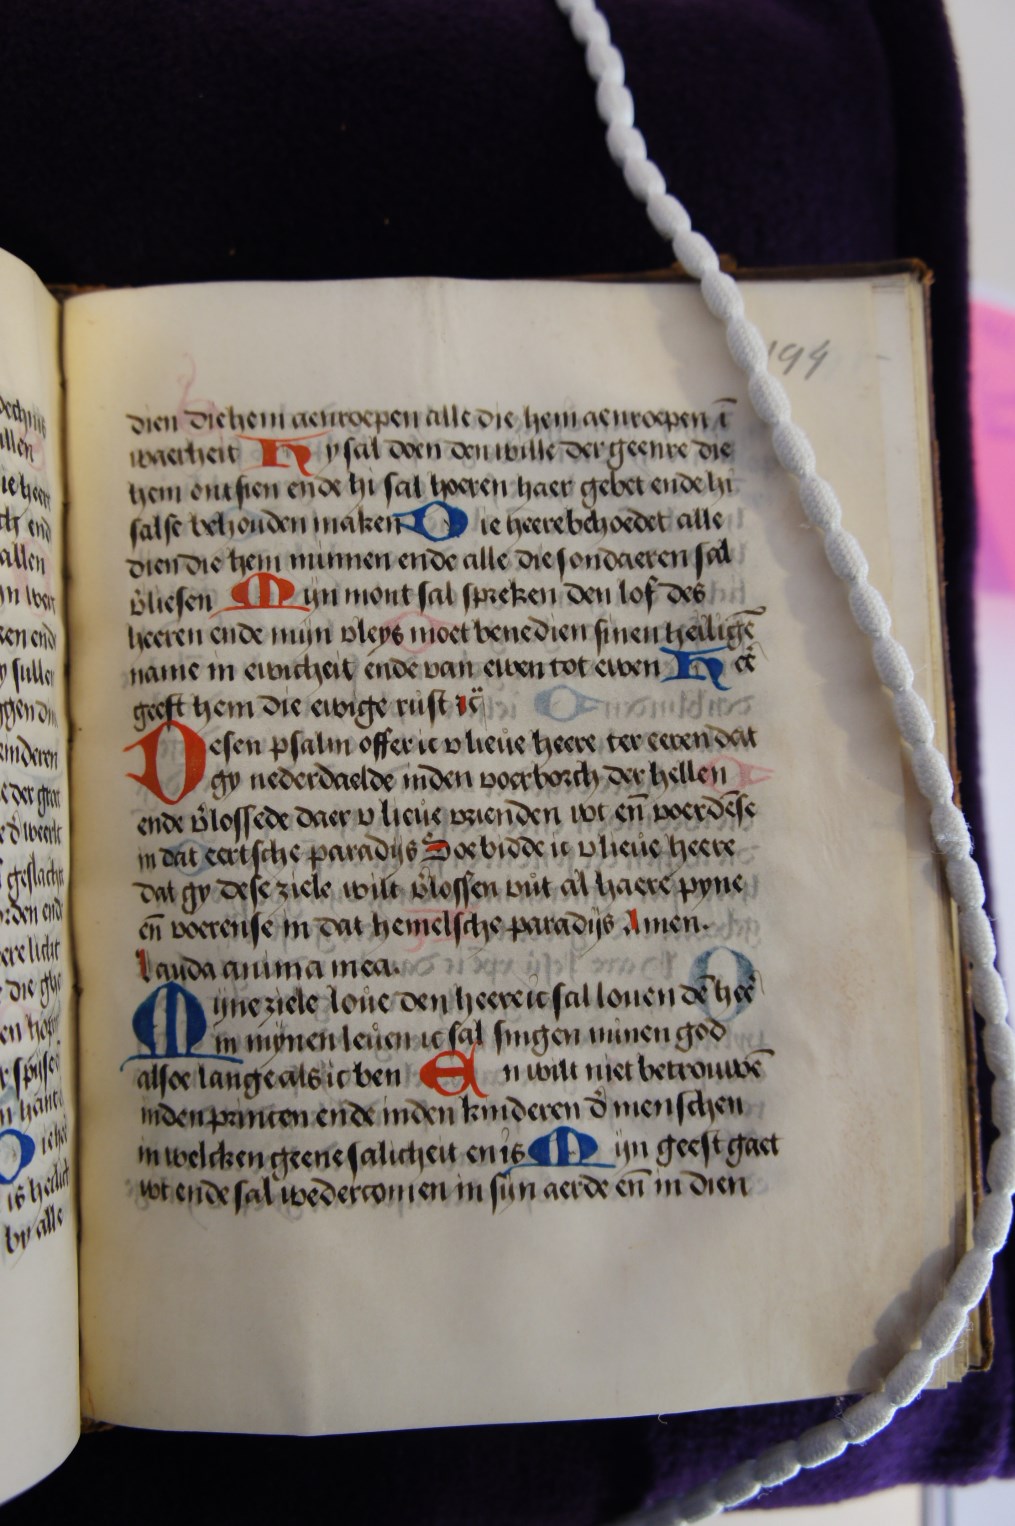 194
dien die hem aenroepen alle die hem aenroepen ī
waerheit Hy sal doen den wille der geenre die
hem ontsien ende hi sal hoeren haer gebet ende hi
sal se behouden maken Die heere behoedet alle
dien die hem minnen ende alle die sondaeren sal
v̉liesen Mijn mont sal spreken den lof des
heeren ende mijn vleys moet benedien sinen heiligē
name in ewicheit ende van ewen tot ewen Heē
geeft hem die ewige rust
Desen psalm offer ic v lieue heere ter eeren dat
gy nederdaelde inden voerborch der hellen
ende v̉lossede daer v lieue vrienden wt eñ voerdēse
in dat eertsche paradijs Soe bidde ic v lieue heere
dat gy dese ziele wilt v̉lossen vut al haere pyne
eñ voerense in dat hemelsche paradijs Amen.
Lauda anima mea.
Mijne ziele loue den heere ic sal louen dē heē
in mynen leuen ic sal singen minen god
alsoe lange als ic ben En wilt niet betrouwē
inden princen ende inden kinderen d̉ menschen
in welcken geene salicheit en is Mijn geest gaet
wt ende sal wedercomen in sijn aerde eñ in dien